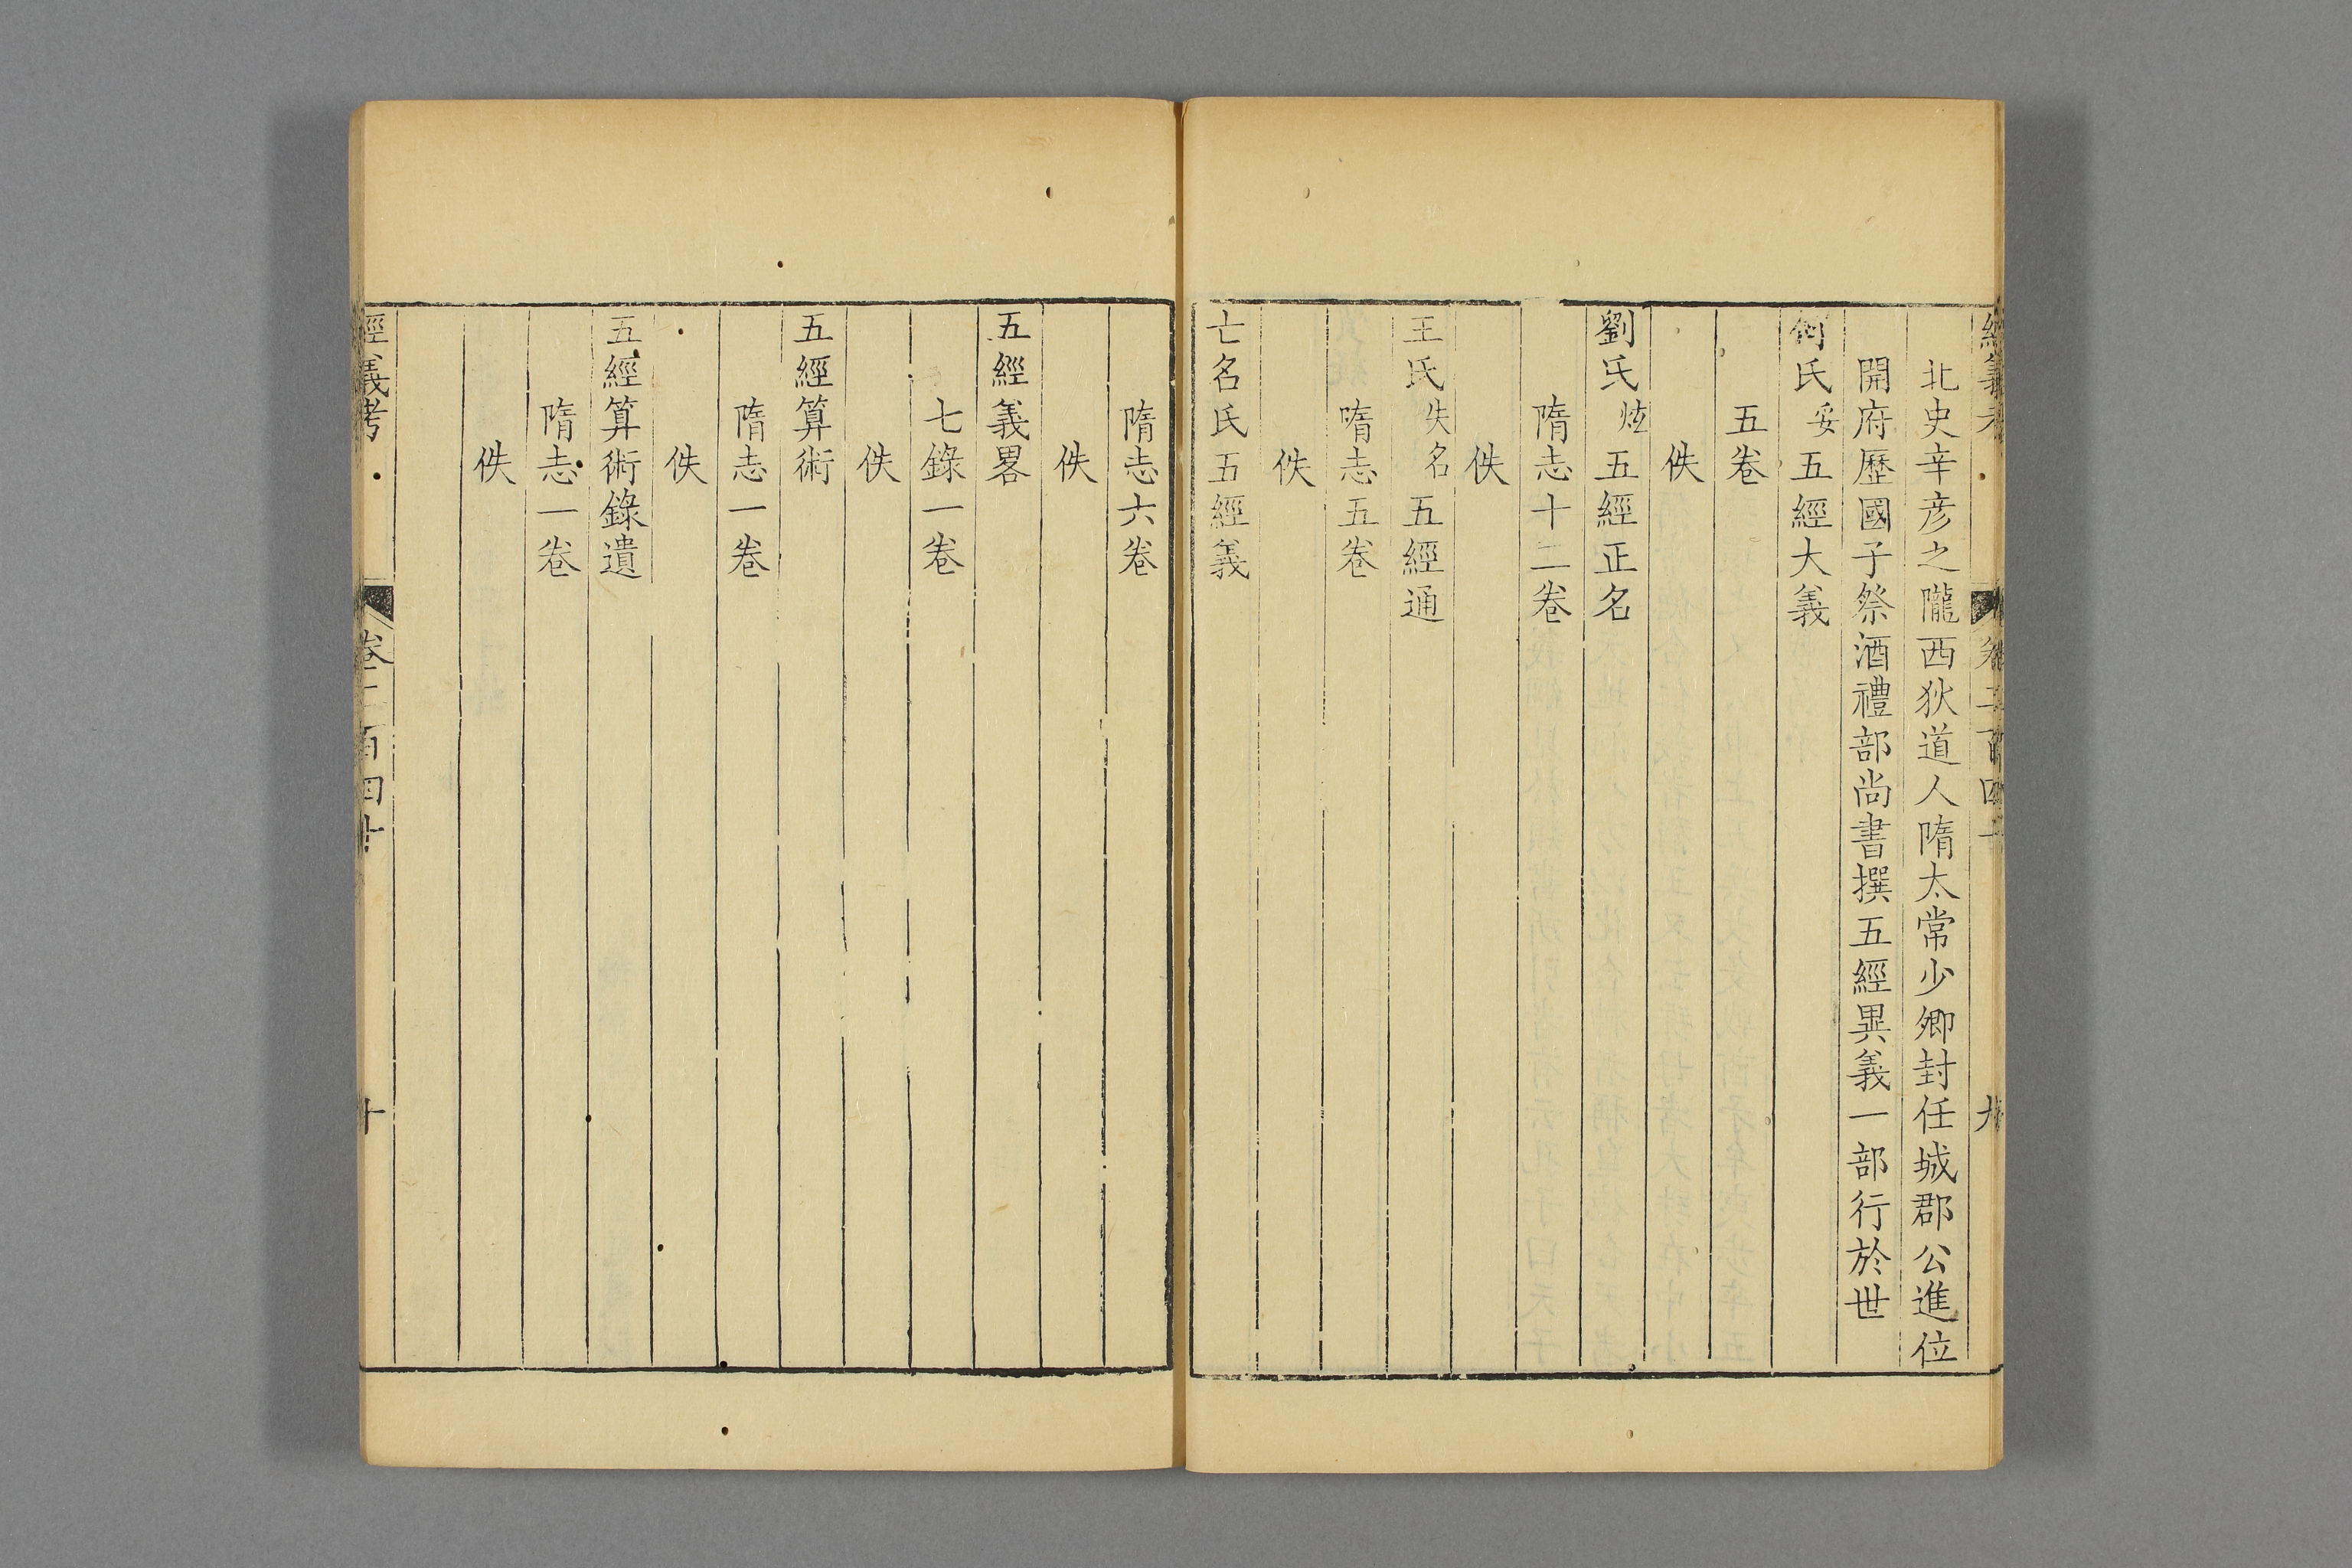 經義考 卷二百四十 九
北史辛彦之隴西狄道人隋太常少卿封任城郡公進位
開府歷國子祭酒禮部尚書撰五經異義一部行於世
何氏妥五經大義
五卷
佚
劉氏炫五經正名
隋志十二卷
佚
王氏失名五經通
隋志五卷
佚
亡名氏五經義
隋志六卷
佚
五經義畧
七錄一卷
佚
五經算術
隋志一卷
佚
五經算術錄遺
隋志一卷
佚
經義考 卷二百四十 十